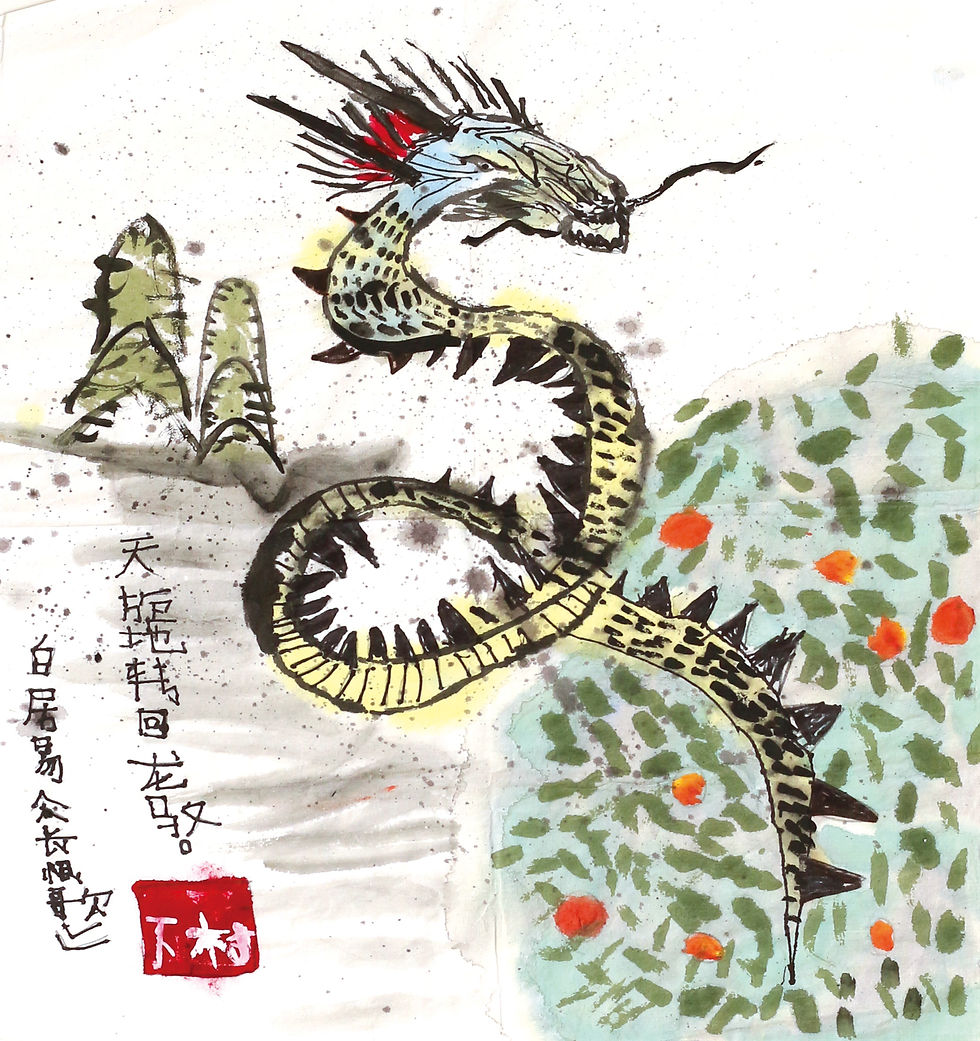 天旋地转回龙驭。
白居易《长恨歌》
下村